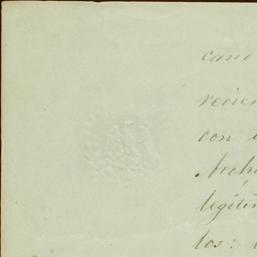 cano
recien
con
Archi
legitim
los: